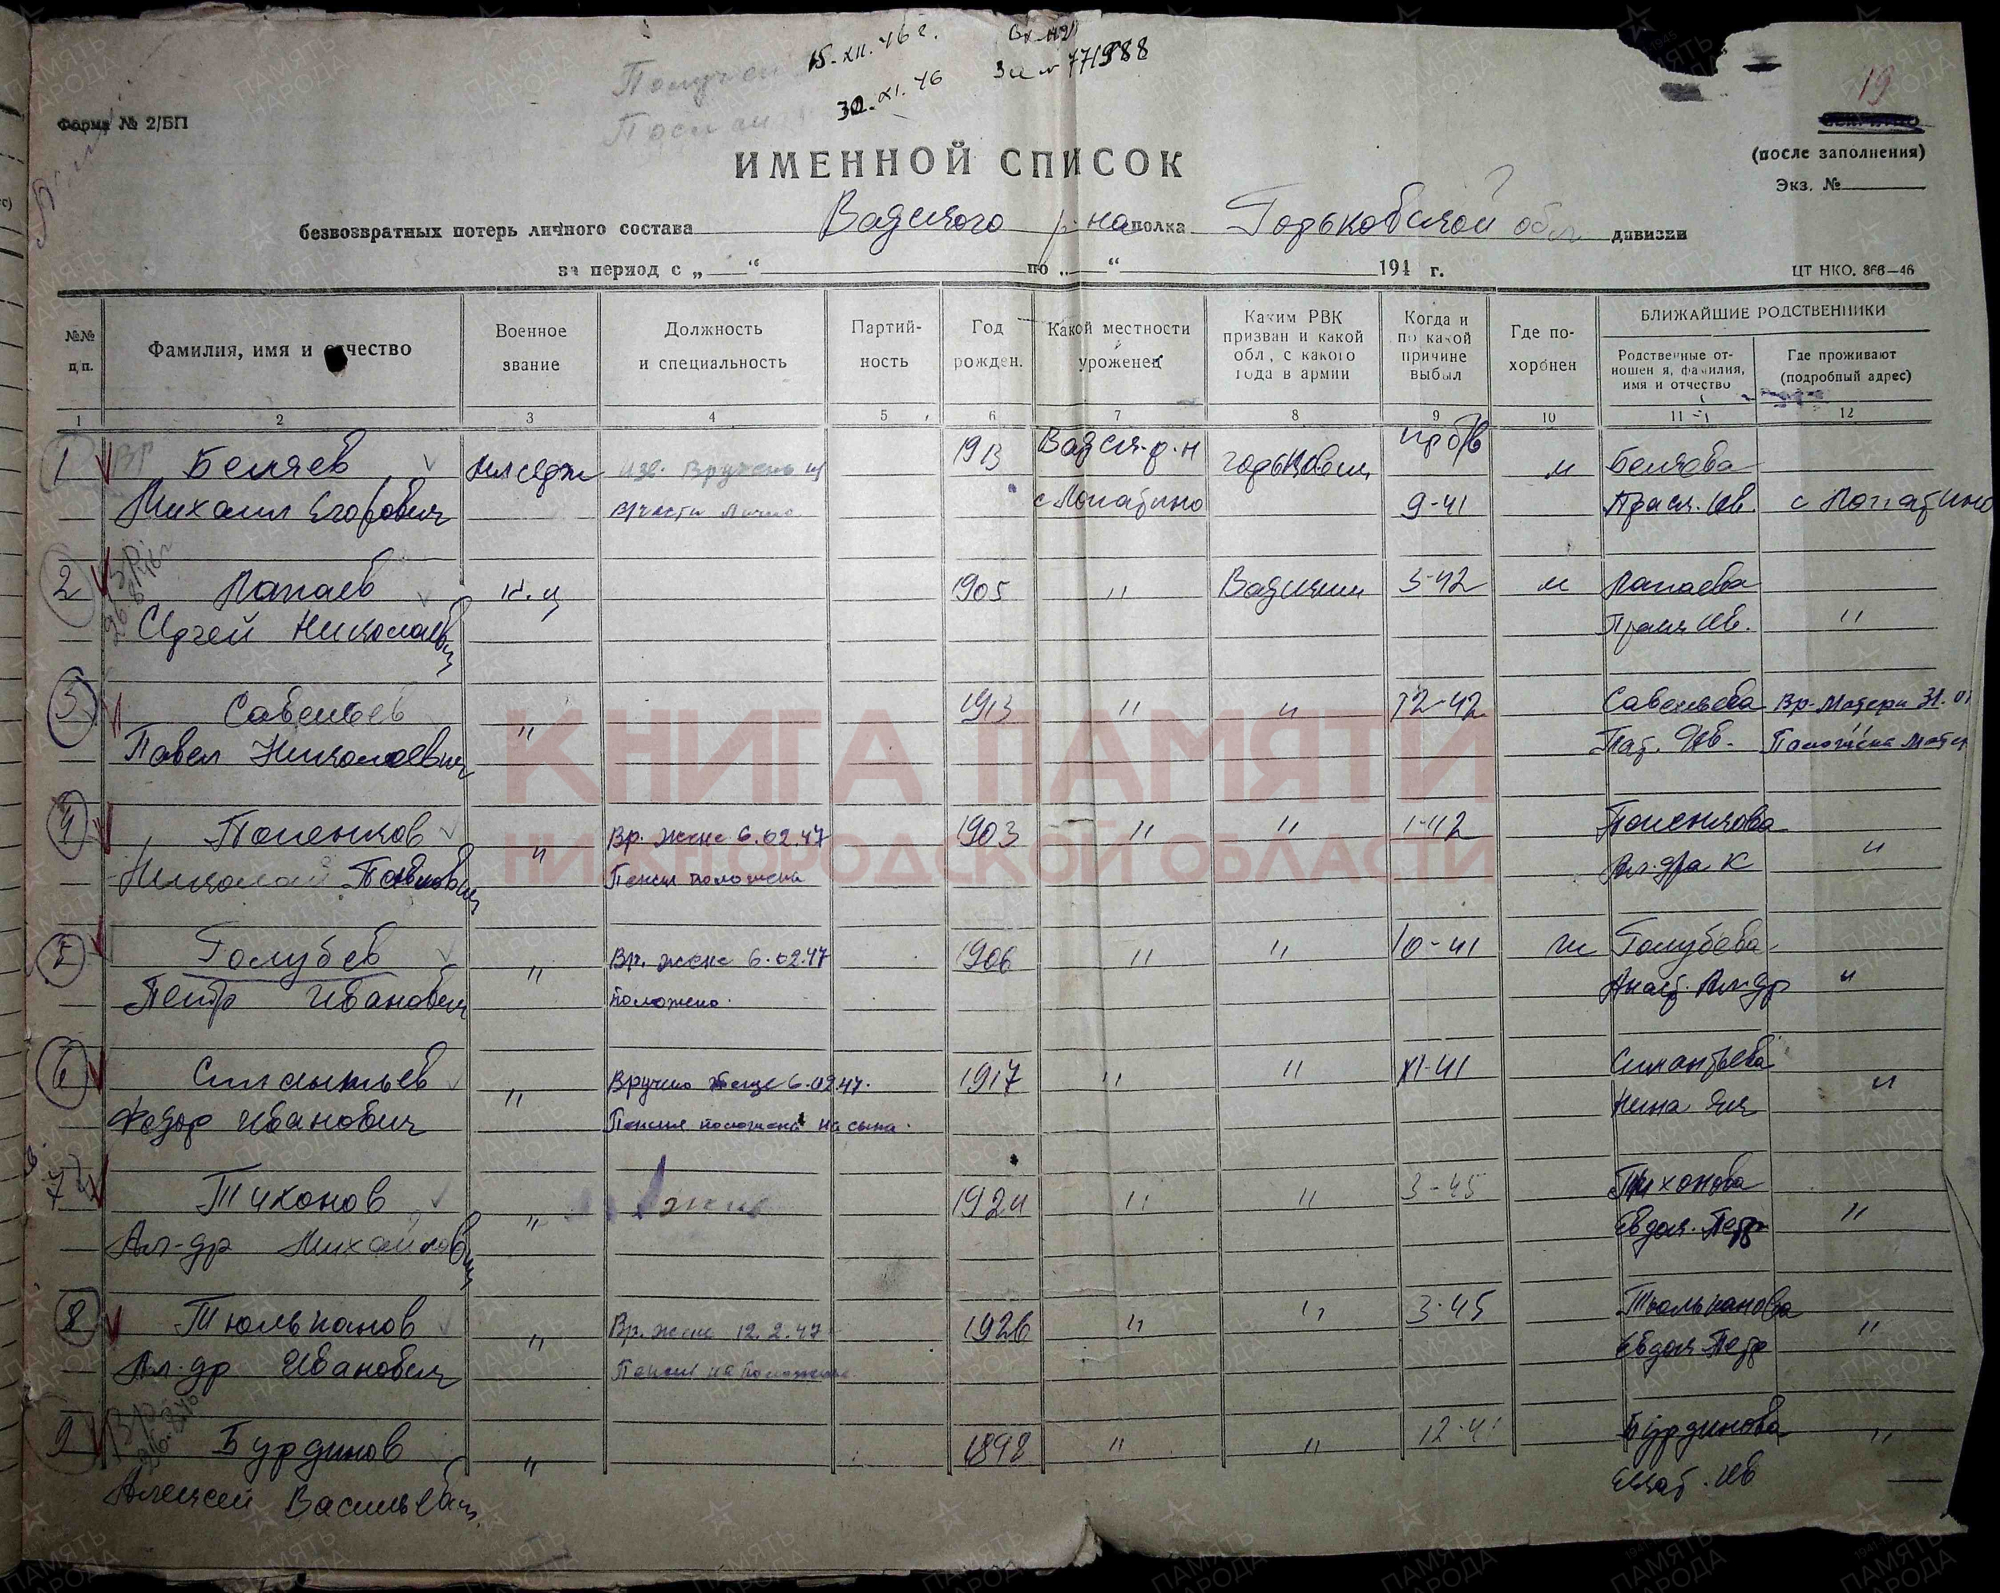 15.XII.46 г.
30.XI.46
За № 771988
19
Форма № 2/БП
(после заполнения)
Экз. №
ИМЕННОЙ СПИСОК
безвозвратных потерь личного состава Вадского р-на полка Горьковской обл дивизии
за период с „ “ по „ “ 194 г.
ЦТ НКО. 866—46
№№ п/п.
Фамилия, имя и отчество
Военное звание
Должность и специальность
Партий-ность
Год рожден.
Какой местности уроженец
Каким РВК призван и какой обл., с какого года в армии
Когда и по какой причине выбыл
Где по-хоронен
БЛИЖАЙШИЕ РОДСТВЕННИКИ
Родственные от-ношения, фамилия, имя и отчество
Где проживают (подробный адрес)
1 2 3 4 5 6 7 8 9 10 11 12
1 Беляев 1913 Вадск. р-н Беляева
Михаил Егорович с Лопатино 9-41 с Лопатино
2 Лапаев 1905 " Вадским 3-42 Лапаева
Сергей Николаевич "
3 Савельев " 1913 " " 12-42 Савельева Вр. Матери 31.01
Павел Николаевич
4 " Вр. жене 6.02.47 1903 " " 1-42
Николай Павлович Ал-дра К "
5 Голубев " Вр. жене 6.02.47 1906 " " 10-41 Голубева
Петр Иванович положено. Анаст. Ал-др "
6 Силантьев " Вручено 6.02.47. 1917 " " XI-41 Силантьева
Федор Иванович Пенсия положена на сына. Нина "
7 Тихонов " жив 1924 " " 3-45 Тихонова
Ал-др Михайлович Евдок. Петр "
8 Тюльпанов " Вр. жене 12.2.47 1926 " " 3-45 Тюльпанова
Ал-др Иванович Евдок Петр "
9 Бурдинов " 1898 " " 12-41 Бурдинова "
Алексей Васильевич Елизав. Ив
КНИГА ПАМЯТИ
НИЖЕГОРОДСКОЙ ОБЛАСТИ
ПАМЯТЬ НАРОДА